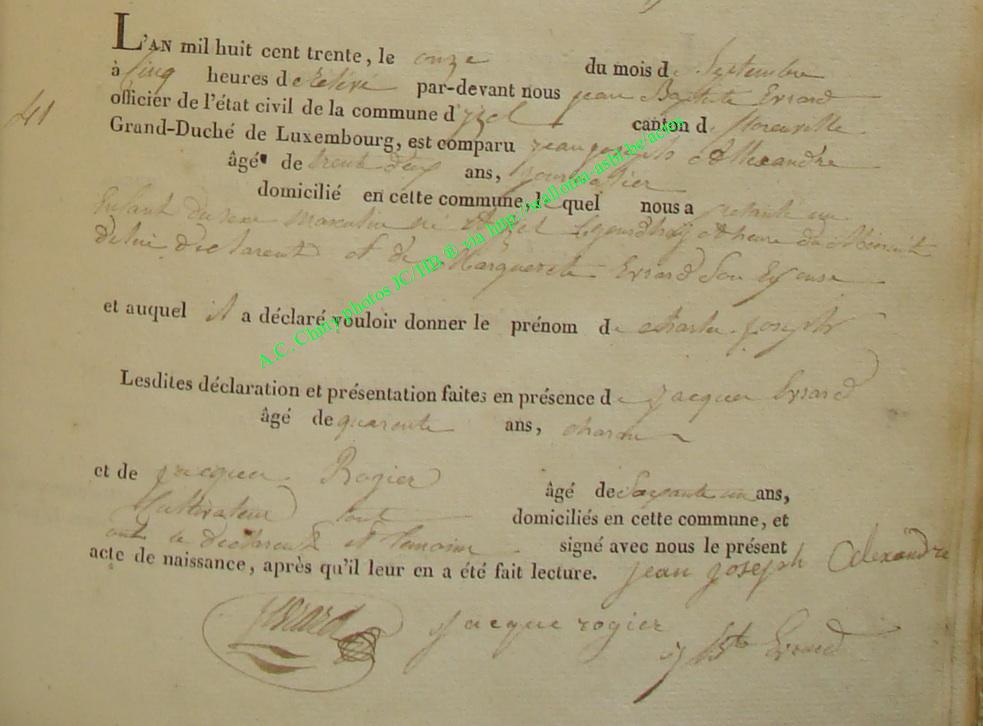 41
L'AN mil huit cent trente, le onze du mois de Septembre
à Cinq heures de relévé par-devant nous jean Baptiste Evrard
officier de l'état civil de la commune d'yzel canton de florenville
Grand-Duché de Luxembourg, est comparu jean joseph Allexandre
âgé de trent deux ans,
domicilié en cette commune, lequel nous a
Enfant du sexe masculin né yzel
de lui déclarent et de Marguerite Evrard Son Epouse
et auquel il a déclaré vouloir donner le prénom de charles joseph
Lesdites déclaration et présentation faites en présence de jacques Evrard
âgé de quarente ans,
et de jacques Rogier âgé de Soixante un ans,
Cultivateur domiciliés en cette commune, et
ont le déclarent et temoins signé avec nous le présent
acte de naissance, après qu'il leur en a été fait lecture. jean joseph Alexandre
Evrard jacque rogier j Bte Evrard
A.C. Chiny photos JC/HB ® via http://wallonia-asbl.be/actes